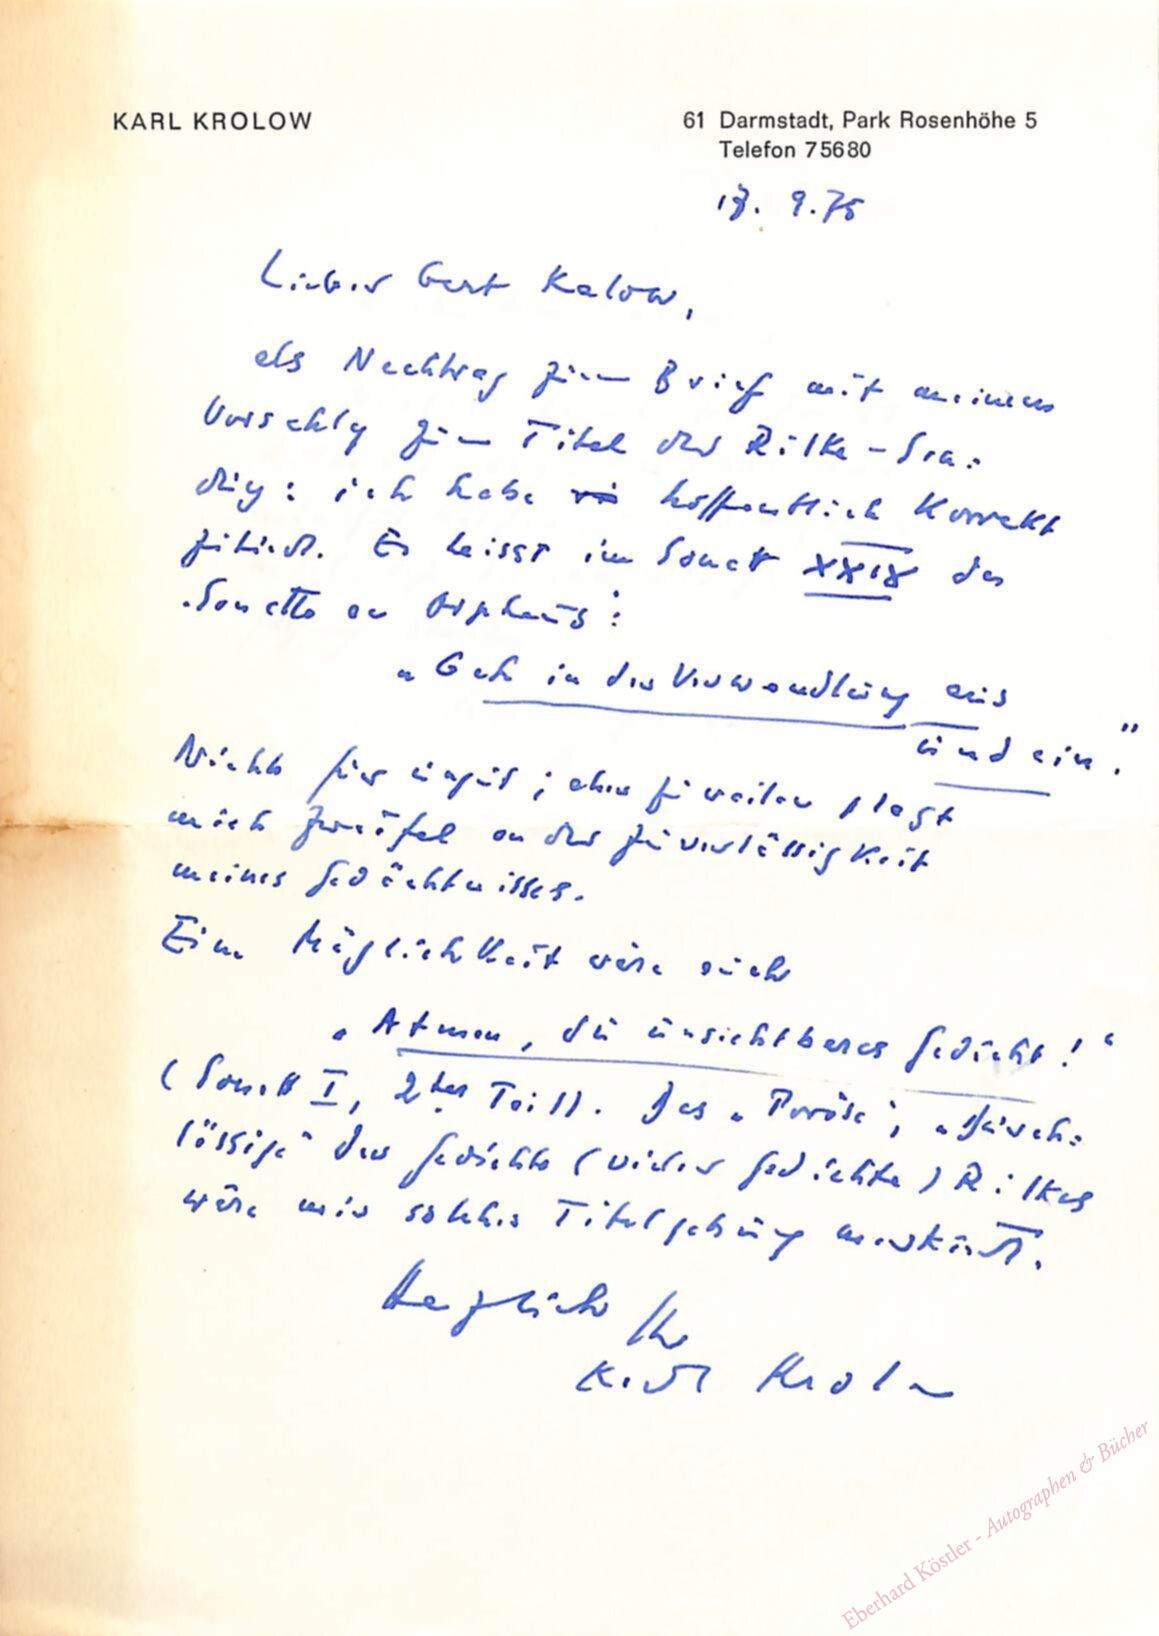 KARL KROLOW
61 Darmstadt, Park Rosenhöhe 5
Telefon 75680
9.75
Lieber Gert Kalow,
als Nachtrag zum Brief mit meinem
Vorschlag zum Titel der Rilke-Sen-
dung: ich habe hoffentlich korrekt
zitiert. Es heisst im Sonett XXIX der
Sonette an Orpheus:
"Geh in der Verwandlung aus
und ein."
Nichts für ungut; aber zuweilen plagt
mich Zweifel an der Zuverlässigkeit
meines Gedächtnisses.
Eine Möglichkeit wäre auch
"Atmen, du unsichtbares Gedicht!"
(Sonett I, 2ter Teil). Das "Poröse", "Durch-
lässige" der Gedichte (vieler Gedichte) Rilkes
wäre mir solcher Titelgebung
Herzlich Ihr
Karl Krolow
Eberhard Köstler - Autographen & Bücher